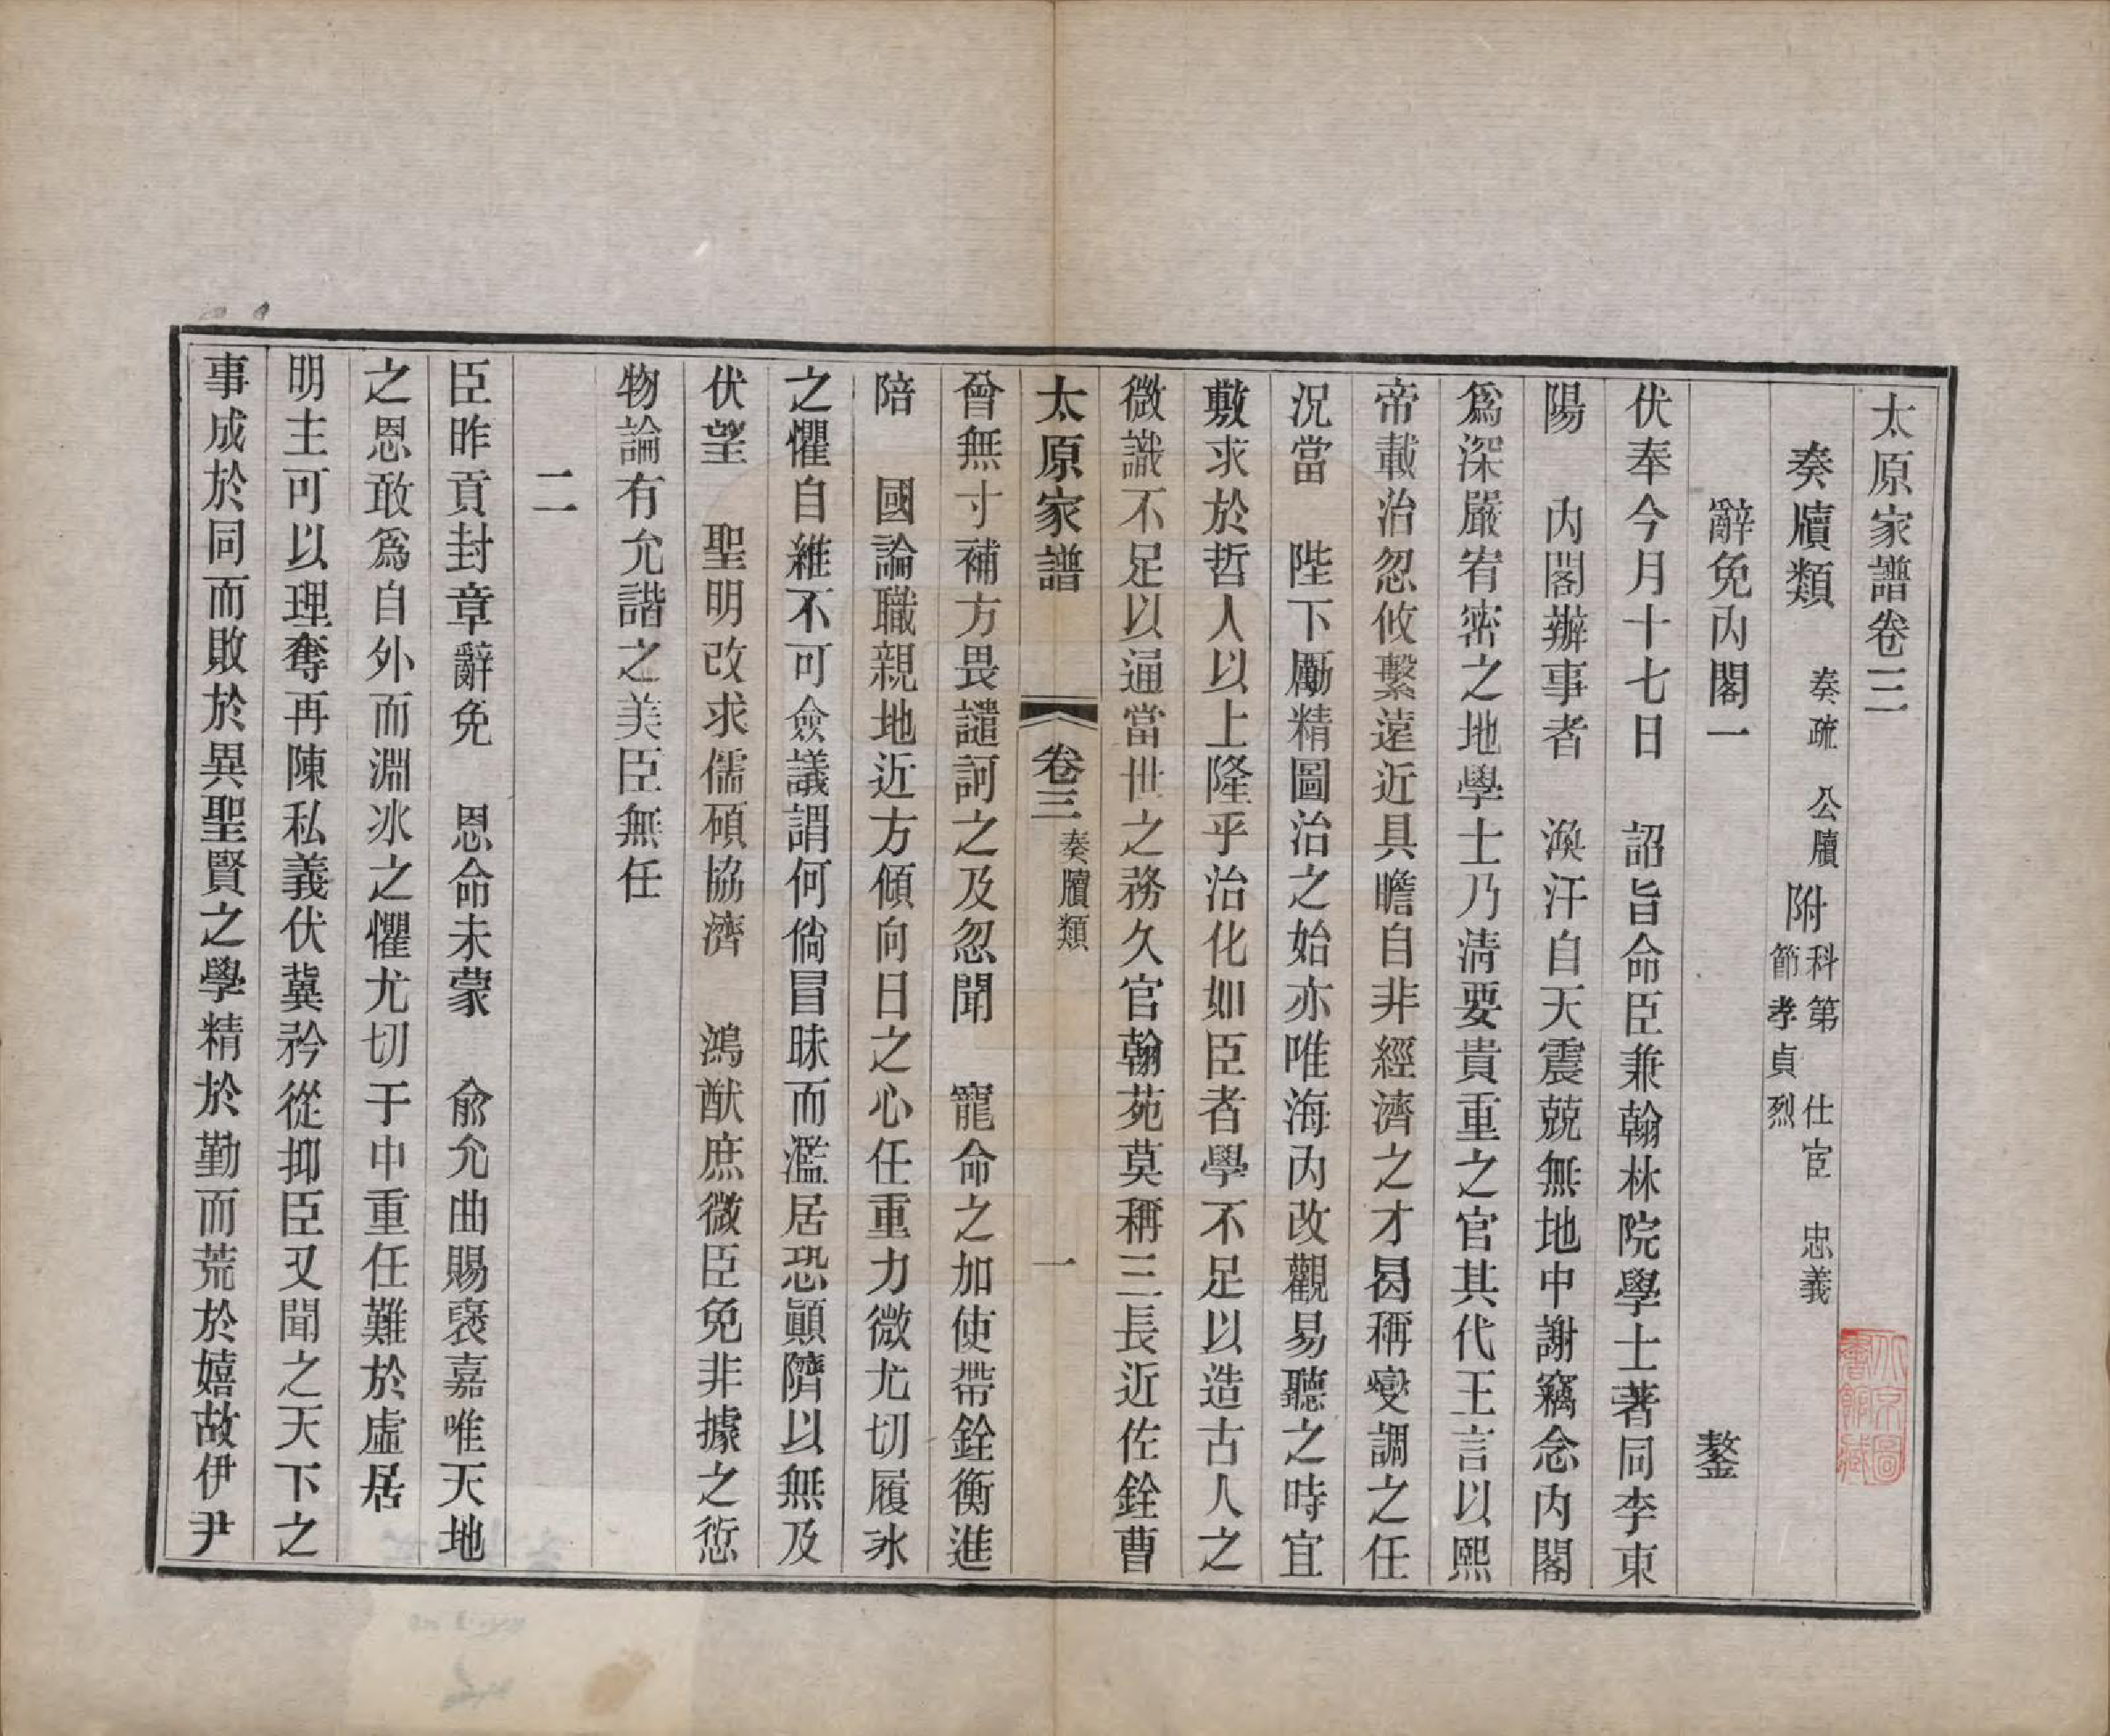 太原家譜卷三
奏牘類　奏疏　公牘　附　科第　仕宦　忠義　節孝貞烈
辭免內閣一　鏊
伏奉今月十七日　詔旨命臣兼翰林院學士著同李東
陽　內閣辦事者　渙汗自天震兢無地中謝竊念內閣
爲深嚴宥密之地學士乃淸要貴重之官其代王言以熙
帝載治忽攸繫遠近具瞻自非經濟之才曷稱變調之任
況當　陛下勵精圖治之始亦唯海內改觀易聽之時宜
敷求於哲人以上隆乎治化如臣者學不足以造古人之
微識不足以通當世之務久官翰苑莫稱三長近佐銓曹
太原家譜　卷三　奏牘類　一
曾無寸補方畏譴訶之及忽聞　寵命之加使帶銓衡進
陪　國論職親地近方傾向日之心任重力微尤切履冰
之懼自維不可僉議謂何倘冒昧而濫居恐顚隮以無及
伏望　聖明改求儒碩協濟　鴻猷庶微臣免非據之愆
物論有允諧之美臣無任
二
臣昨貢封章辭免　恩命未蒙　俞允曲賜褒嘉唯天地
之恩敢爲自外而淵冰之懼尤切于中重任難於虛居
明主可以理奪再陳私義伏冀矜從抑臣又聞之天下之
事成於同而敗於異聖賢之學精於勤而荒於嬉故伊尹